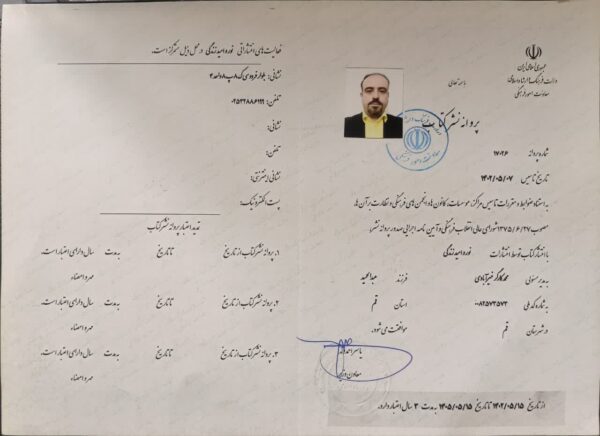 جمهوری اسلامی ایران
وزارت فرهنگ و ارشاد اسلامی
معاونت امور فرهنگی
باسمه تعالی
پروانه نشر کتاب
شماره پروانه ۱۷۰۲۶
تاریخ تاسیس ۱۴۰۲/۰۵/۰۷
به استناد ضوابط و مقررات تاسیس مراکز، موسسات، کانون ها و انجمن های فرهنگی و نظارت بر آن ها
مصوب ۱۳۷۵/۰۶/۲۷ شورای عالی انقلاب فرهنگی و آیین نامه اجرایی صدور پروانه نشر،
با انتشار کتاب توسط انتشارات نوره امید زندگی
به مدیر مسئولی محمد کارگر خیرآبادی فرزند عبدالحمید
به شماره کد ملی ۰۰۸۲۵۷۳۵۷۲ استان قم
در شهرستان قم موافقت می شود.
معاون وزیر
از تاریخ ۱۴۰۲/۰۵/۱۵ تا تاریخ ۱۴۰۵/۰۵/۱۵ به مدت ۳ سال اعتبار دارد.
فعالیت های انتشاراتی نوره امید زندگی در محل ذیل متمرکز است.
نشانی: بلوار فردوسی ک۸ پ۸ واحد۲
تلفن: ۰۲۵۳۲۸۸۶۱۹۹
نشانی:
تلفن:
نشانی اینترنتی:
پست الکترونیک:
تمدید اعتبار پروانه نشر کتاب
۱. پروانه نشر کتاب از تاریخ تا تاریخ به مدت سال دارای اعتبار است.
مهر و امضاء
۲. پروانه نشر کتاب از تاریخ تا تاریخ به مدت سال دارای اعتبار است.
مهر و امضاء
۳. پروانه نشر کتاب از تاریخ تا تاریخ به مدت سال دارای اعتبار است.
مهر و امضاء